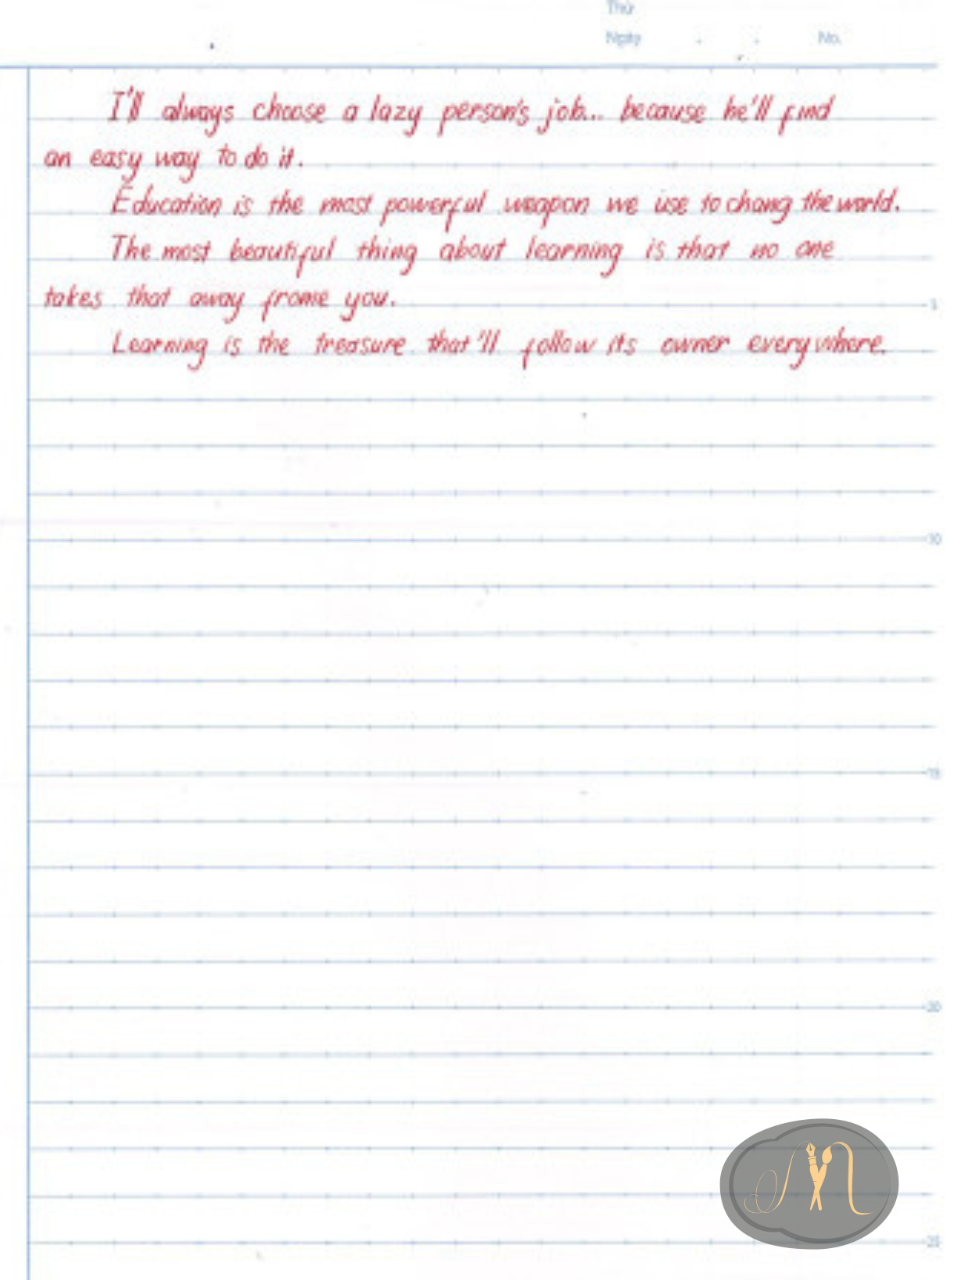 Thứ
Ngày . . No.
I'll always choose a lazy person's job... because he'll find
an easy way to do it.
Education is the most powerful weapon we use to chang the world.
The most beautiful thing about learning is that no one
takes that away frome you.
5
Learning is the treasure that'll follow its owner everywhere.
10
15
20
25